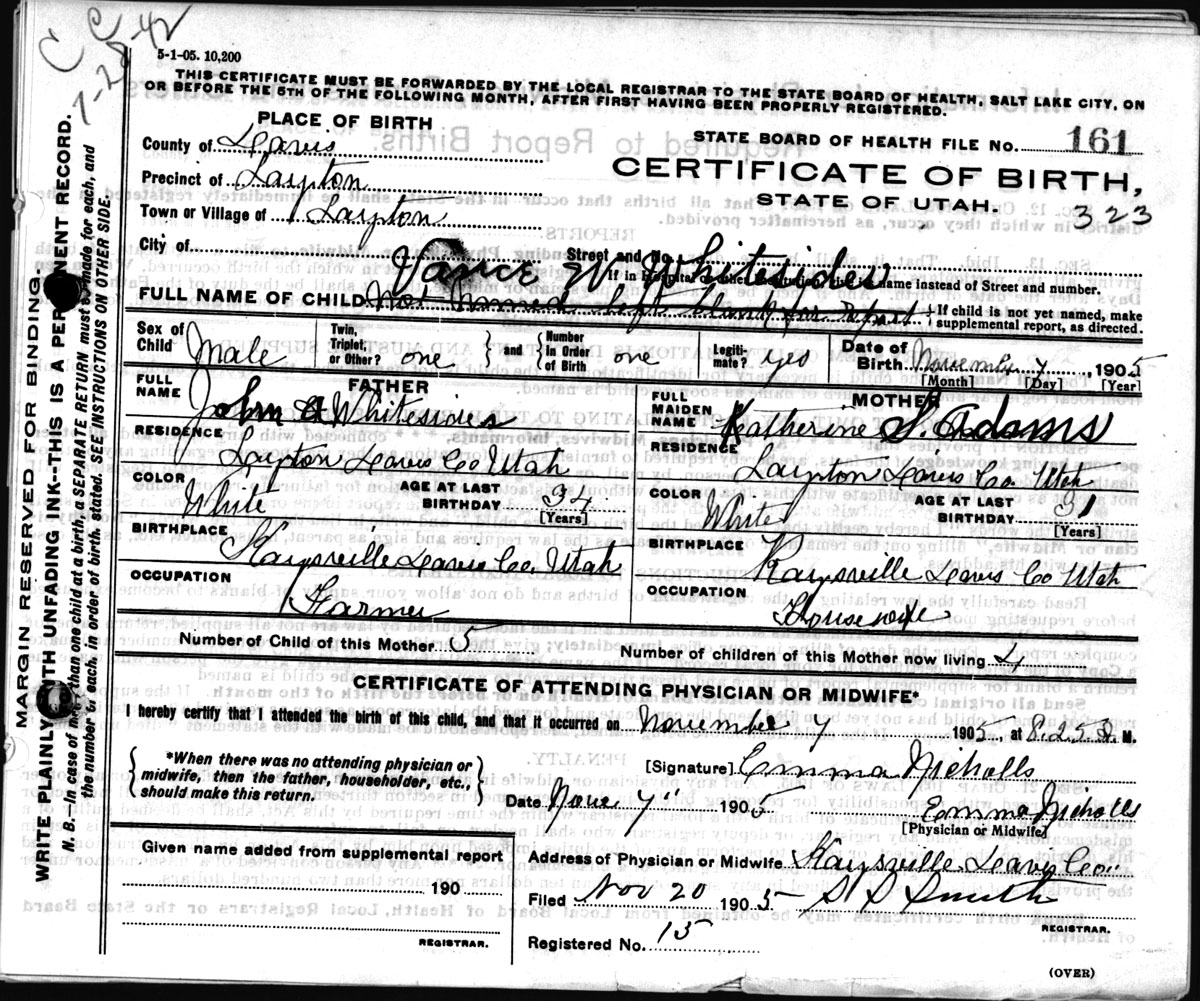 C C
7-28-42
5-1-05. 10,200
THIS CERTIFICATE MUST BE FORWARDED BY THE LOCAL REGISTRAR TO THE STATE BOARD OF HEALTH, SALT LAKE CITY, ON
OR BEFORE THE 5TH OF THE FOLLOWING MONTH, AFTER FIRST HAVING BEEN PROPERLY REGISTERED.
PLACE OF BIRTH
STATE BOARD OF HEALTH FILE No. 161
County of Davis
CERTIFICATE OF BIRTH,
Precinct of Layton
STATE OF UTAH.
323
Town or Village of Layton
City of Street and No.
Vance W Whitesides
If in Hospital or other Institution, give its name instead of Street and number.
FULL NAME OF CHILD Not Named left blank for report { If child is not yet named, make
supplemental report, as directed.
Sex of Child Male Twin, Triplet, or Other? one } and { Number in Order of Birth one Legiti- mate? yes Date of Birth November 7, 1905
[Month] [Day] [Year]
FATHER
FULL NAME John A Whitesides
RESIDENCE
Layton Davis Co Utah
COLOR White AGE AT LAST BIRTHDAY 34
[Years]
BIRTHPLACE
Kaysville Davis Co. Utah
OCCUPATION
Farmer
MOTHER
FULL MAIDEN NAME Katherine S. Adams
RESIDENCE
Layton Davis Co. Utah
COLOR White AGE AT LAST BIRTHDAY 31
[Years]
BIRTHPLACE
Kaysville Davis Co Utah
OCCUPATION
Housewife
Number of Child of this Mother 5 Number of children of this Mother now living 4
CERTIFICATE OF ATTENDING PHYSICIAN OR MIDWIFE*
I hereby certify that I attended the birth of this child, and that it occurred on November 7 1905, at 8.25 P. M.
*When there was no attending physician or
midwife, then the father, householder, etc.,
should make this return.
[Signature] Emma Nicholls
Date Nove 7" 1905 Emma Nicholls
[Physician or Midwife]
Given name added from supplemental report
190
REGISTRAR.
Address of Physician or Midwife Kaysville Davis Co.
Filed Nov 20 1905 S Smith
REGISTRAR.
Registered No. 15
(OVER)
MARGIN RESERVED FOR BINDING.
WRITE PLAINLY WITH UNFADING INK--THIS IS A PERMANENT RECORD.
N. B.--In case of more than one child at a birth, a SEPARATE RETURN must be made for each, and
the number of each, in order of birth, stated. SEE INSTRUCTIONS ON OTHER SIDE.